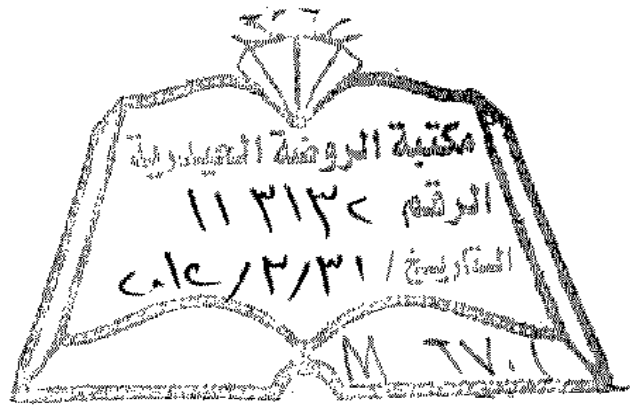 مكتبة الروضة الحيدرية
الرقم ١١٣١٣٢
التاريخ / ٢٠١٢/٣/٣١